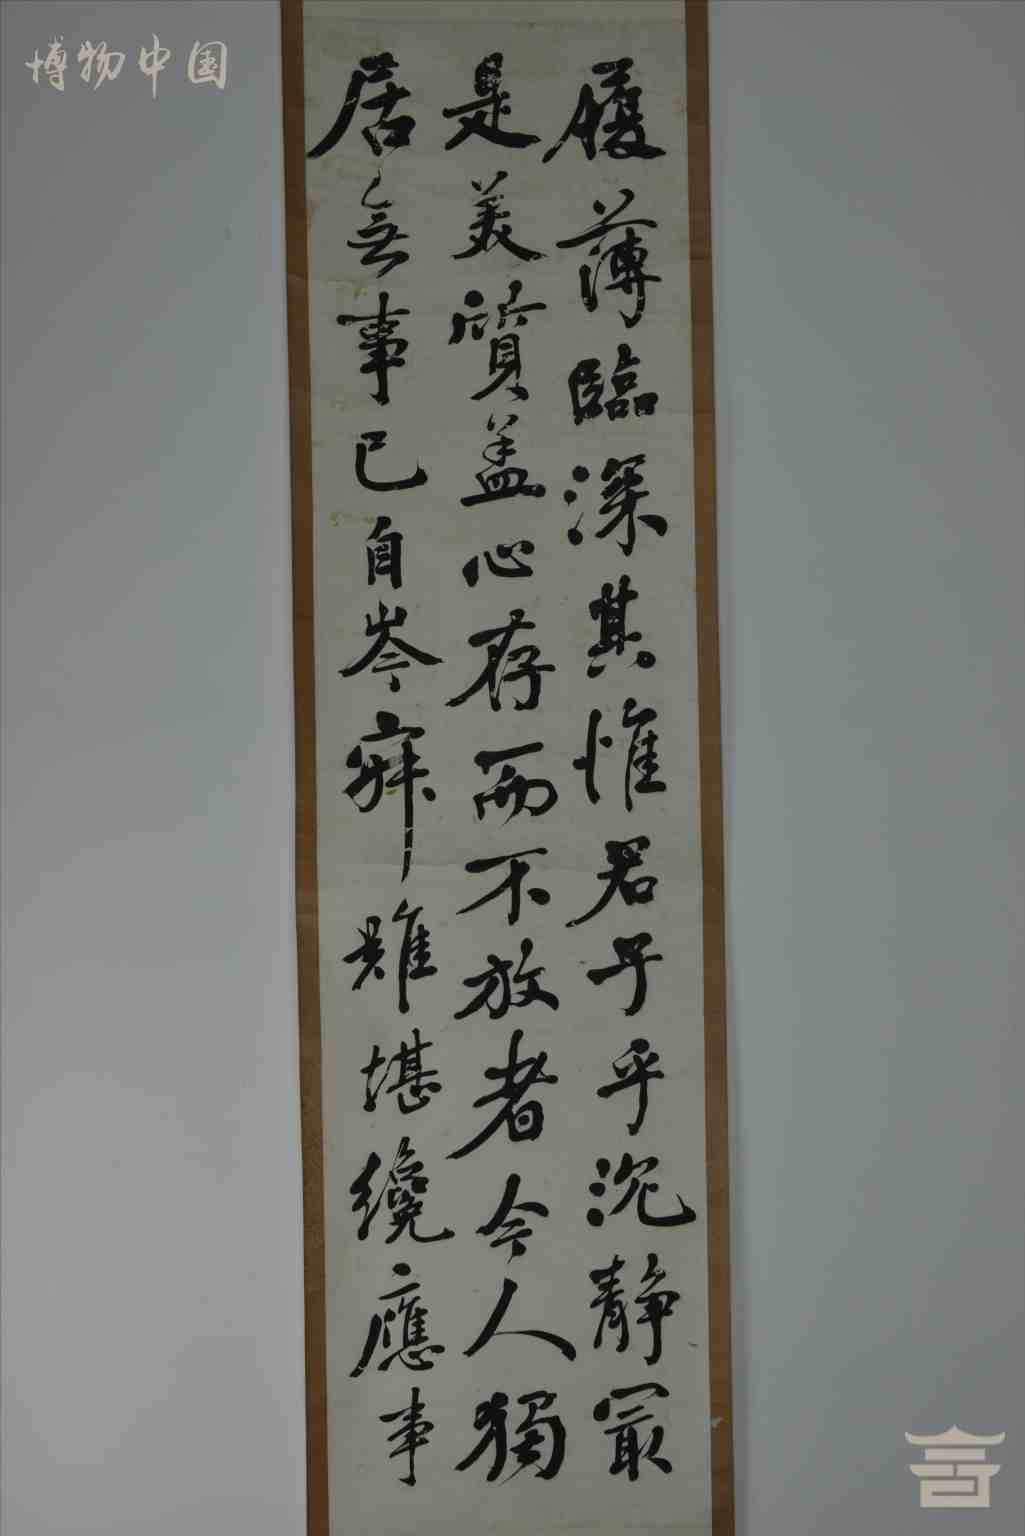 博物中国
履薄臨深其惟君子乎沉静最
是美質盖心存而不放者今人獨
居無事已自岑寂難堪纔應事